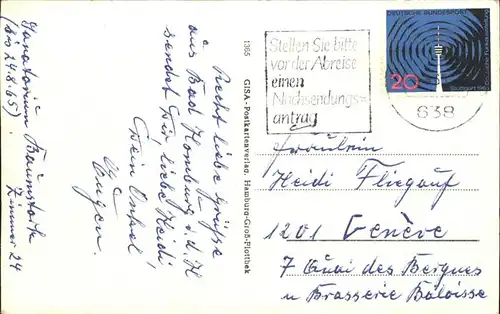 Sanatorium Baumstark
(bis 24.8.65). Zimmer 24
Recht liebe Grüsse
aus Bad Homburg v. d. H
sendet Dir, liebe Heidi
Dein Onkel
Eugen.
1365 GISA-Postkartenverlag, Hamburg-Groß-Flottbek
Stellen Sie bitte
vor der Abreise
einen
Nachsendungs=
antrag
DEUTSCHE BUNDESPOST
20
Stuttgart 1965
638
Fräulein
Heidi Fliegauf
1201 Genève
7 Quai des Bergues
u Brasserie Bâloise